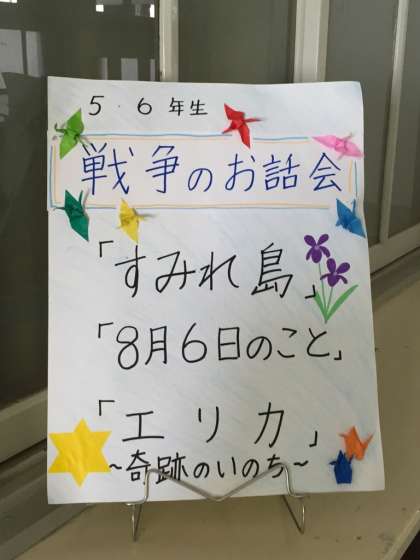 5・6年生
戦争のお話会
「すみれ島」
「8月6日のこと」
「エリカ」
~奇跡のいのち~